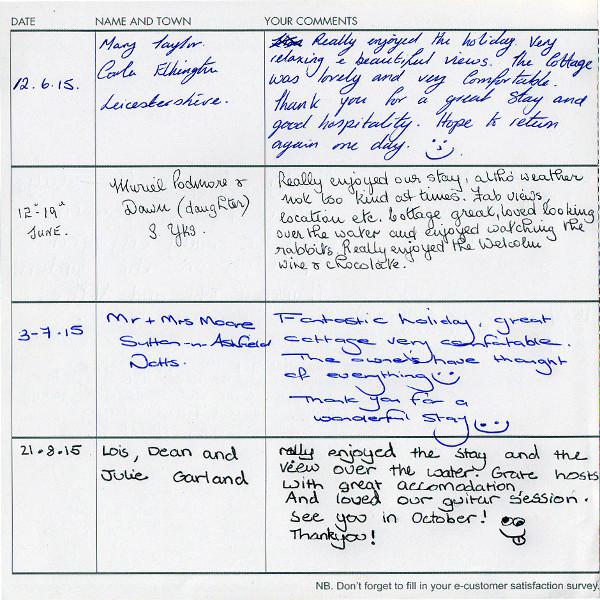 DATE NAME AND TOWN YOUR COMMENTS
12.6.15.
Mary Taylor.
Carla Elkington
Leicestershire.
Really enjoyed the holiday. Very
relaxing & beautiful views. The Cottage
was lovely and very Comfortable.
Thank you for a great Stay and
good hospitality. Hope to return
again one day.
12th-19th
JUNE.
Muriel Podmore &
Dawn (daughter)
S Yks.
Really enjoyed our stay, altho weather
not too kind at times. Fab views,
location etc. Cottage great, loved looking
over the water and enjoyed watching the
rabbits. Really enjoyed the Welcolm
wine & chocolate.
3-7.15
Mr + Mrs Moore
Sutton-in-Ashfield
Notts.
Fantastic holiday, great
cottage very comfatable.
The owners have thought
of everything
Thank you for a
wonderful stay
21.8.15
Lois, Dean and
Julie Garland
rally enjoyed the stay and the
view over the water. Grate hosts
with great accomodation
And loved our guitar session.
See you in October!
Thankyou!
NB. Don't forget to fill in your e-customer satisfaction survey.